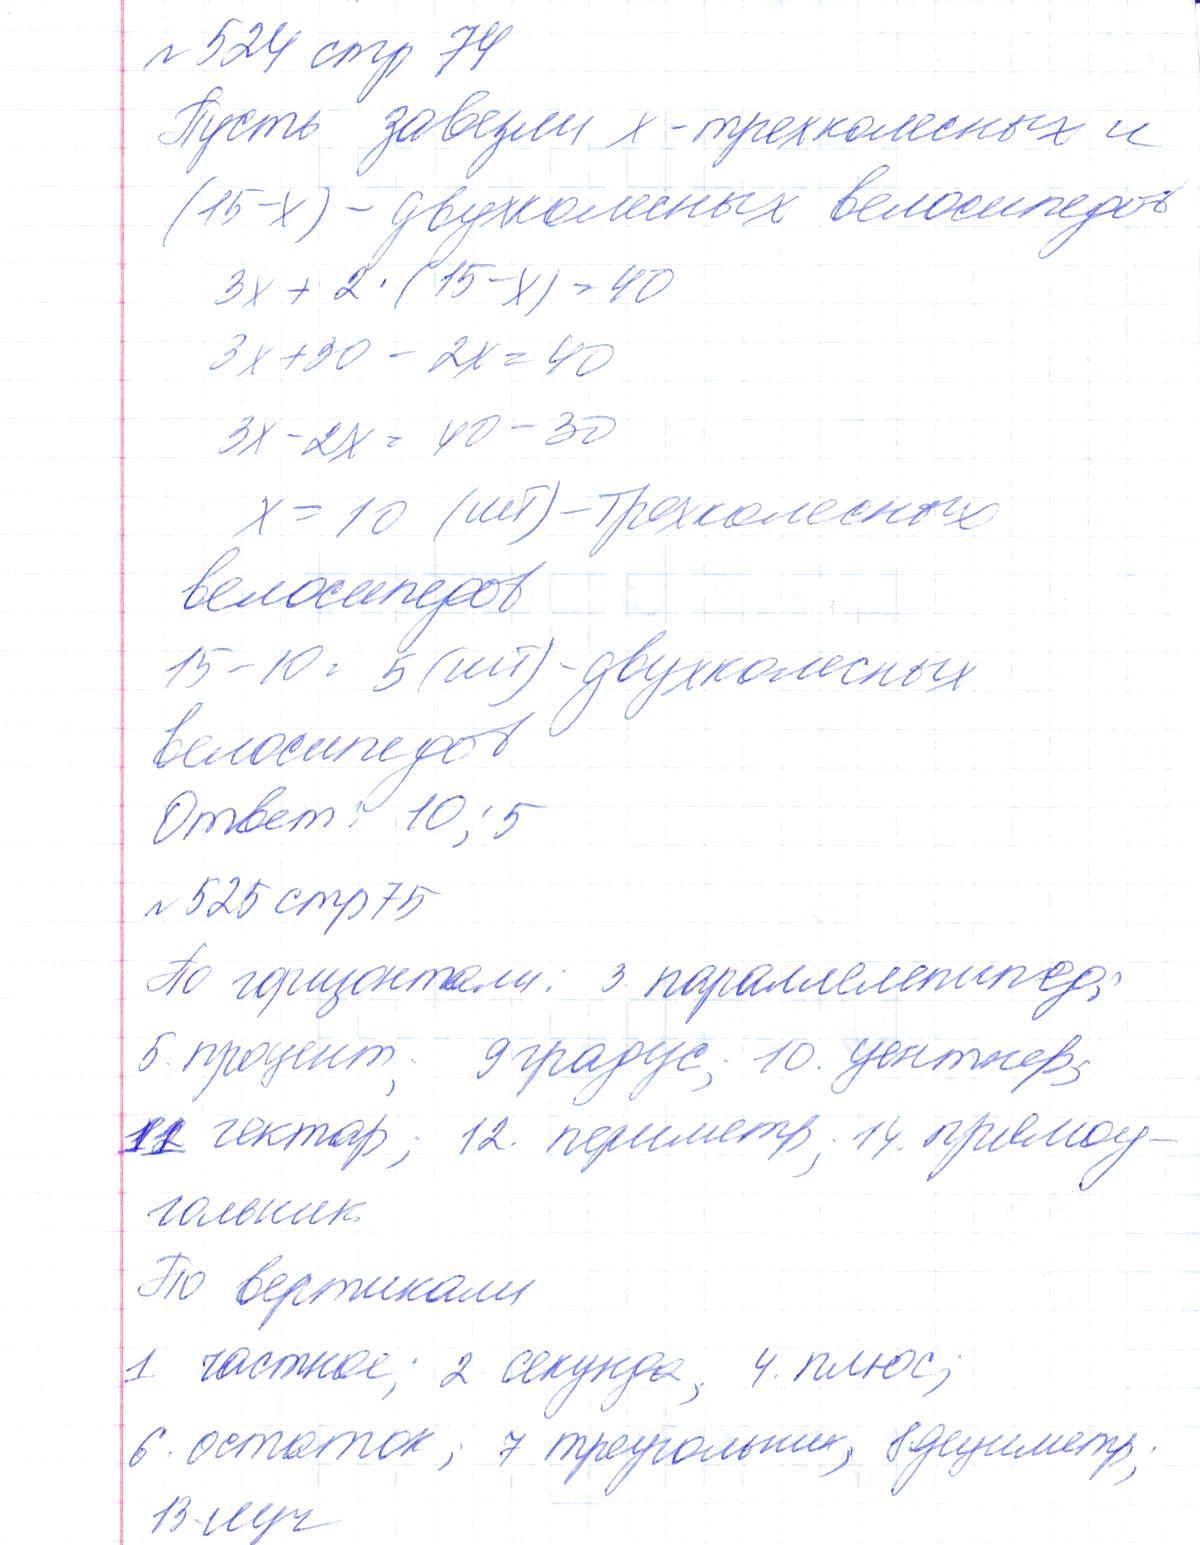 № 524 стр 74
Пусть завезли х - трехколесных и
(15-х) - двухколесных велосипедов
3х + 2 · (15-х) = 40
3х+30 - 2х = 40
3х - 2х = 40 - 30
х = 10 (шт) - трехколесных
велосипедов
15 - 10 = 5 (шт) - двухколесных
велосипедов
Ответ: 10; 5
№ 525 стр 75
По горизонтали: 3. параллелепипед;
5. процент; 9 градус; 10. центнер;
11 гектар; 12. периметр; 14. прямоу-
гольник.
По вертикали
1 частное; 2 секунда; 4. плюс;
6. остаток; 7 треугольник; 8 дециметр;
13 луч